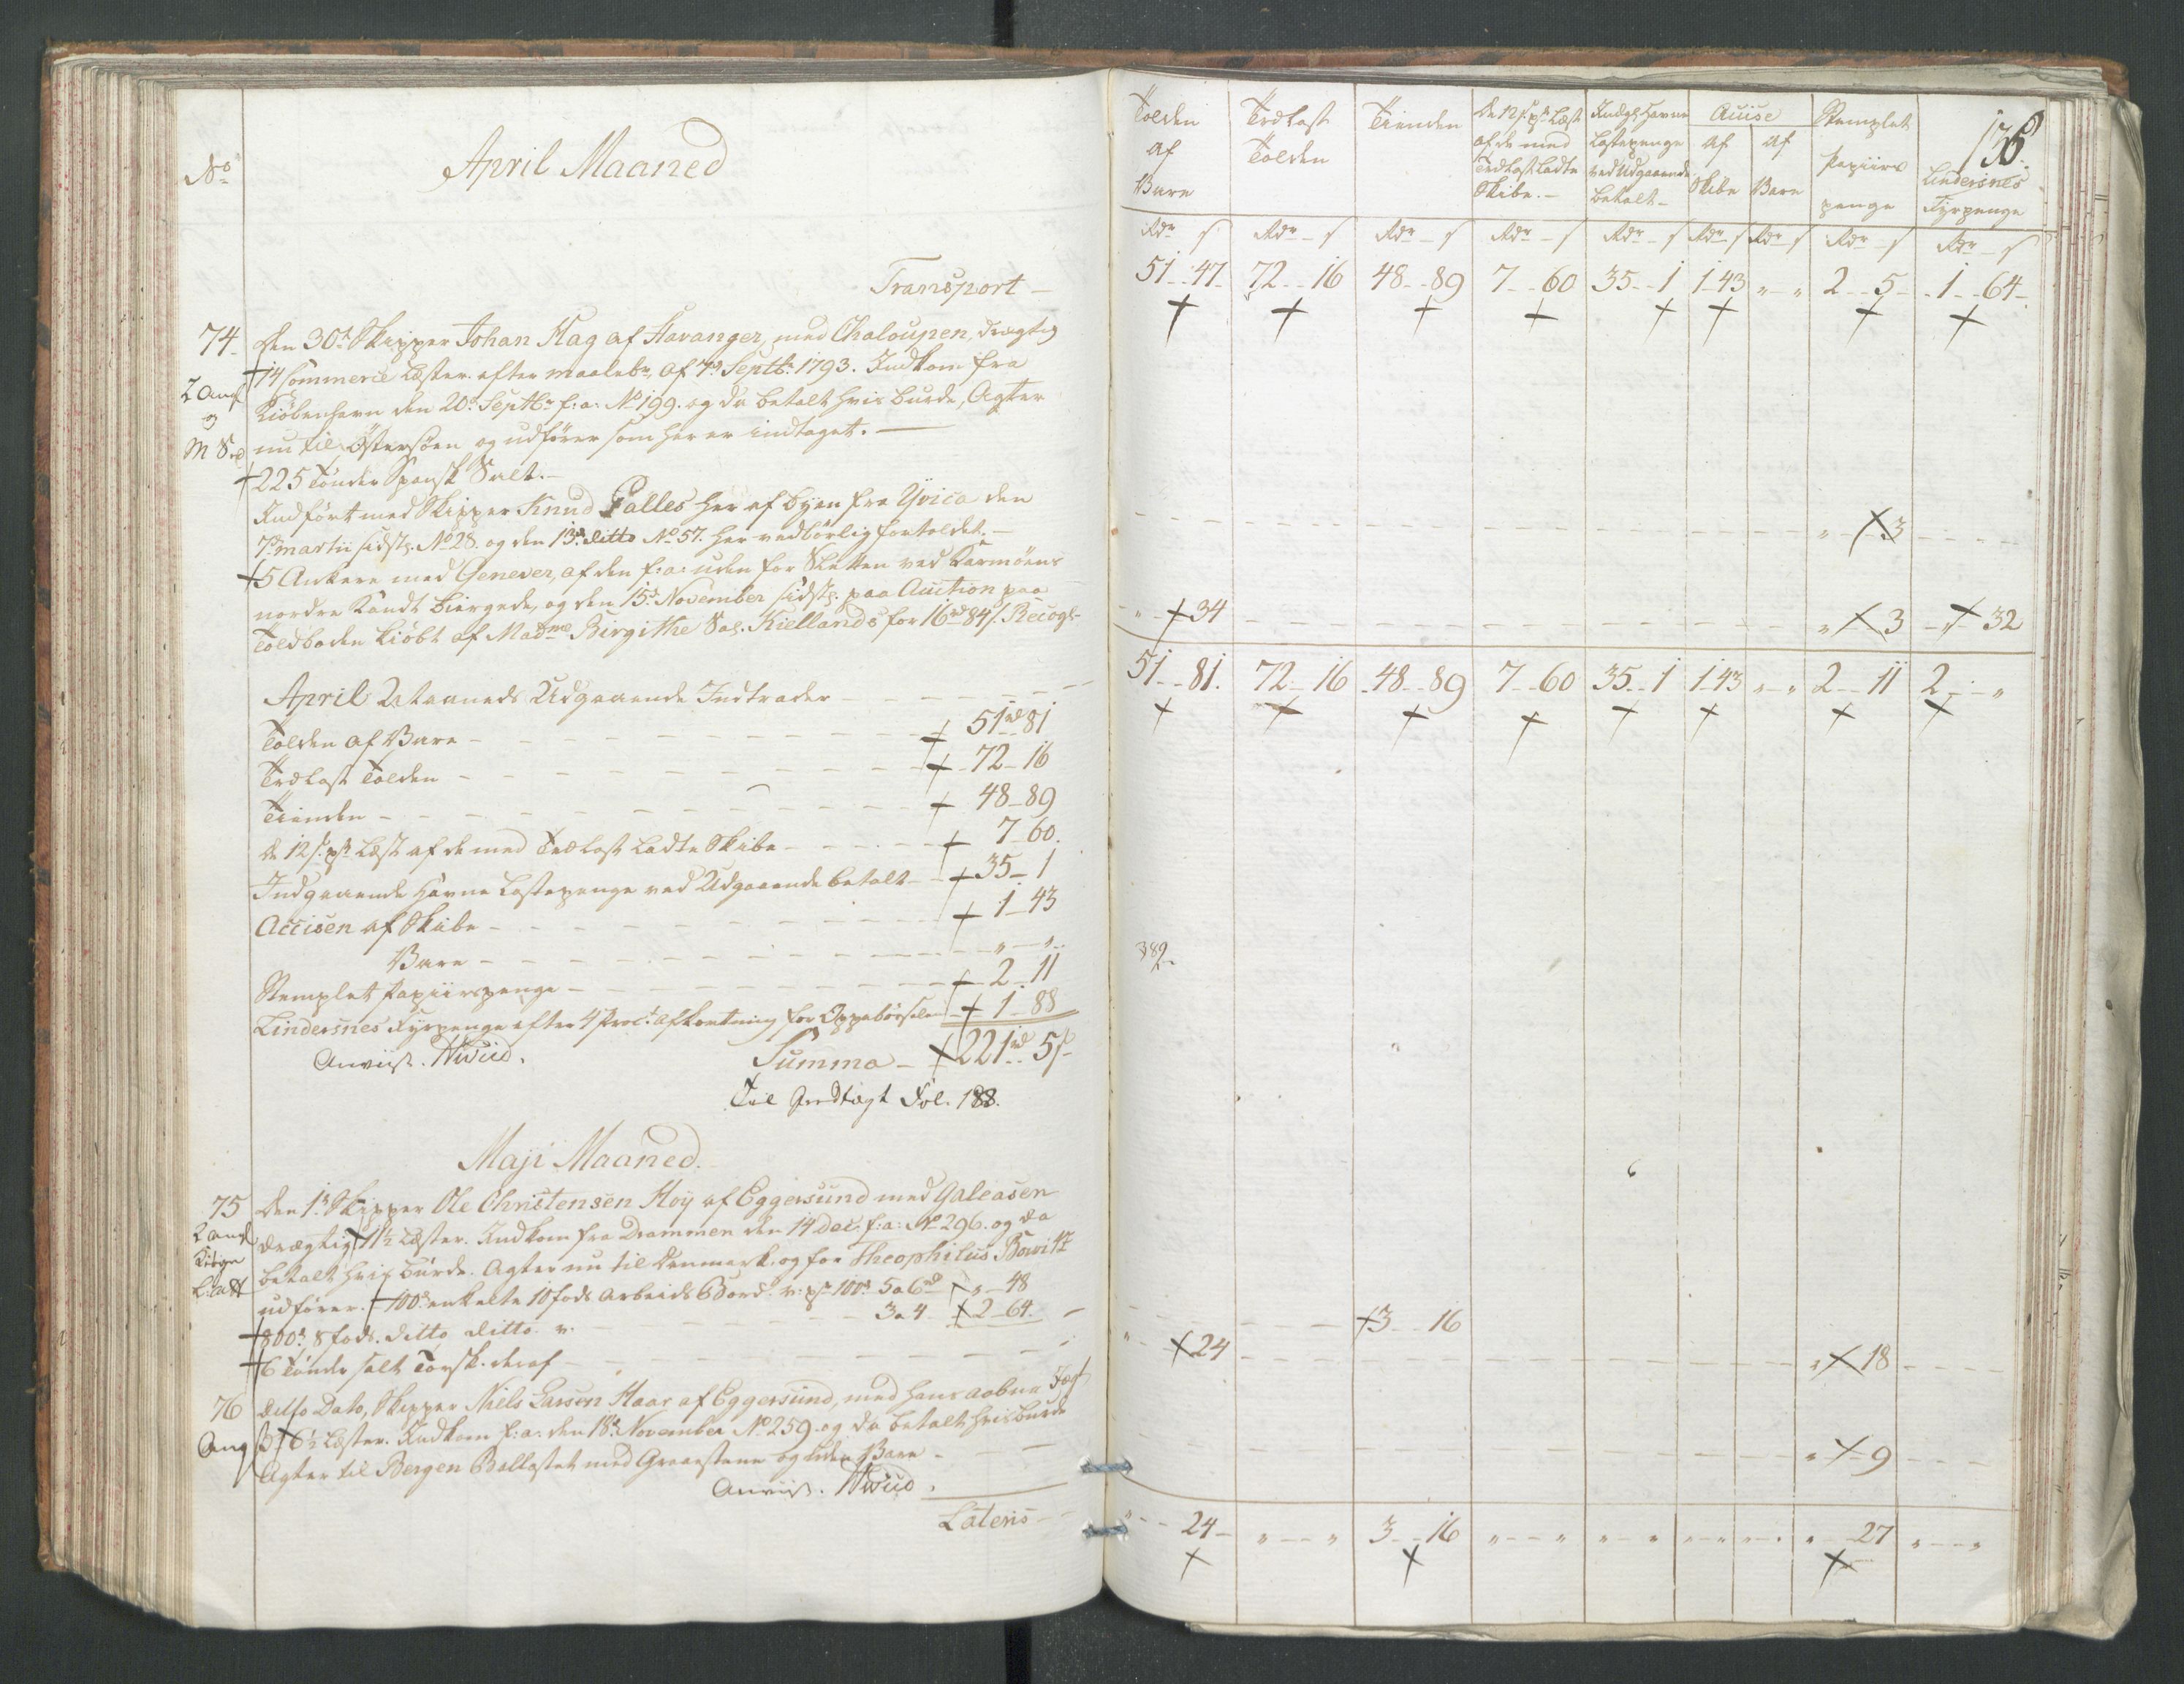 No
April Maaned
Transport
74. Den 30t Skipper Johan Hag af Stavanger, med Chaloupen, drægtig
14 Commerce Læster efter maalebr. af 7d Septbr. 1793. Indkom fra
Kiöbenhavn den 20d Septbr f: a: No 199. og da betalt hvis burde, Agter
og
nu til Östersöen og udförer som her er indtaget.
225 Tönder Spansk Salt.
Indfört med Skipper Knud Palles her af byen fra Yvica den
7d martii sidstl. No 28. og den 13d ditto No 57. her vedbörlig fortoldet.
5 Ankere med Genever, af den f: a: uden for Sletten ved Karmöens
nordre Kandt biergede, og den 15d November sidstl. paa Auction paa
Toldboden kiöbt af Madme Birgithe Sal. Kiellands for 16rd 84s. Recogn
April Maaneds Udgaaende Indtrader
Tolden af Vare 51rd 81
Trælast Tolden 72 16
Tienden 48 89
De 12 s. pr Læst af de med Trælast Ladte Skibe 7 60.
Indgaaende Havne Lastepenge ved Udgaaende betalt 35 1
Accisen af Skibe 1 43
Vare " "
Stemplet Papiirspenge 2 11
Lindersnes Fyrpenge efter 4 Proct. afkortning for Oppebörselen 1 88
Summa 221rd 5s
Til Indtægt Fol. 188.
Maji Maaned.
75 Den 1t Skipper Ole Christensen Hoÿ af Eggersund med Galeasen
drægtig 11½ Læster. Indkom fra Drammen den 14 Dec. f: a: No 296. og da
betalt hvis burde. Agter nu til Danmark og for Theophilus Bowitz
udförer. 100d enkelte 10 fods Arbeids Bord v. pr 100d 5 a 6rd " 48
800d 8 fods ditto ditto v. 3 a 4 2 64.
6 Tönder salt Torsk. deraf
76 Ditto Dato, Skipper Niels Larsen Haar af Eggersund, med hans aabne Jægt
6½ Læster. Indkom f: a: den 18d November No 259. og da betalt hvis burde
Agter til Bergen Ballastet med Graaesteene og uden Vare
Lateris
Tolden af Vare
Trælast Tolden
Tienden
De 12 s. pr Læst af de med Trælast ladte Skibe.
Indg. Havne Lastepenge ved Udgaaende betalt
Accise
af Skibe
af Vare
Stemplet Papiirs penge
Lindersnes Fyrpenge
Rdr s Rdr s Rdr s Rdr s Rdr s Rdr s Rdr s Rdr s Rdr s
51 47 72 16 48 89 7 60 35 1 1 43 " " 2 5 1 64
" 3
" 34 " 3 " 32
51 81. 72 16 48 89 7 60 35 1 1 43 " " 2 11 2 "
3 16
" 24 " 18
" 9
" 24 " " 3 16 " " " " " " " " " 27 " "